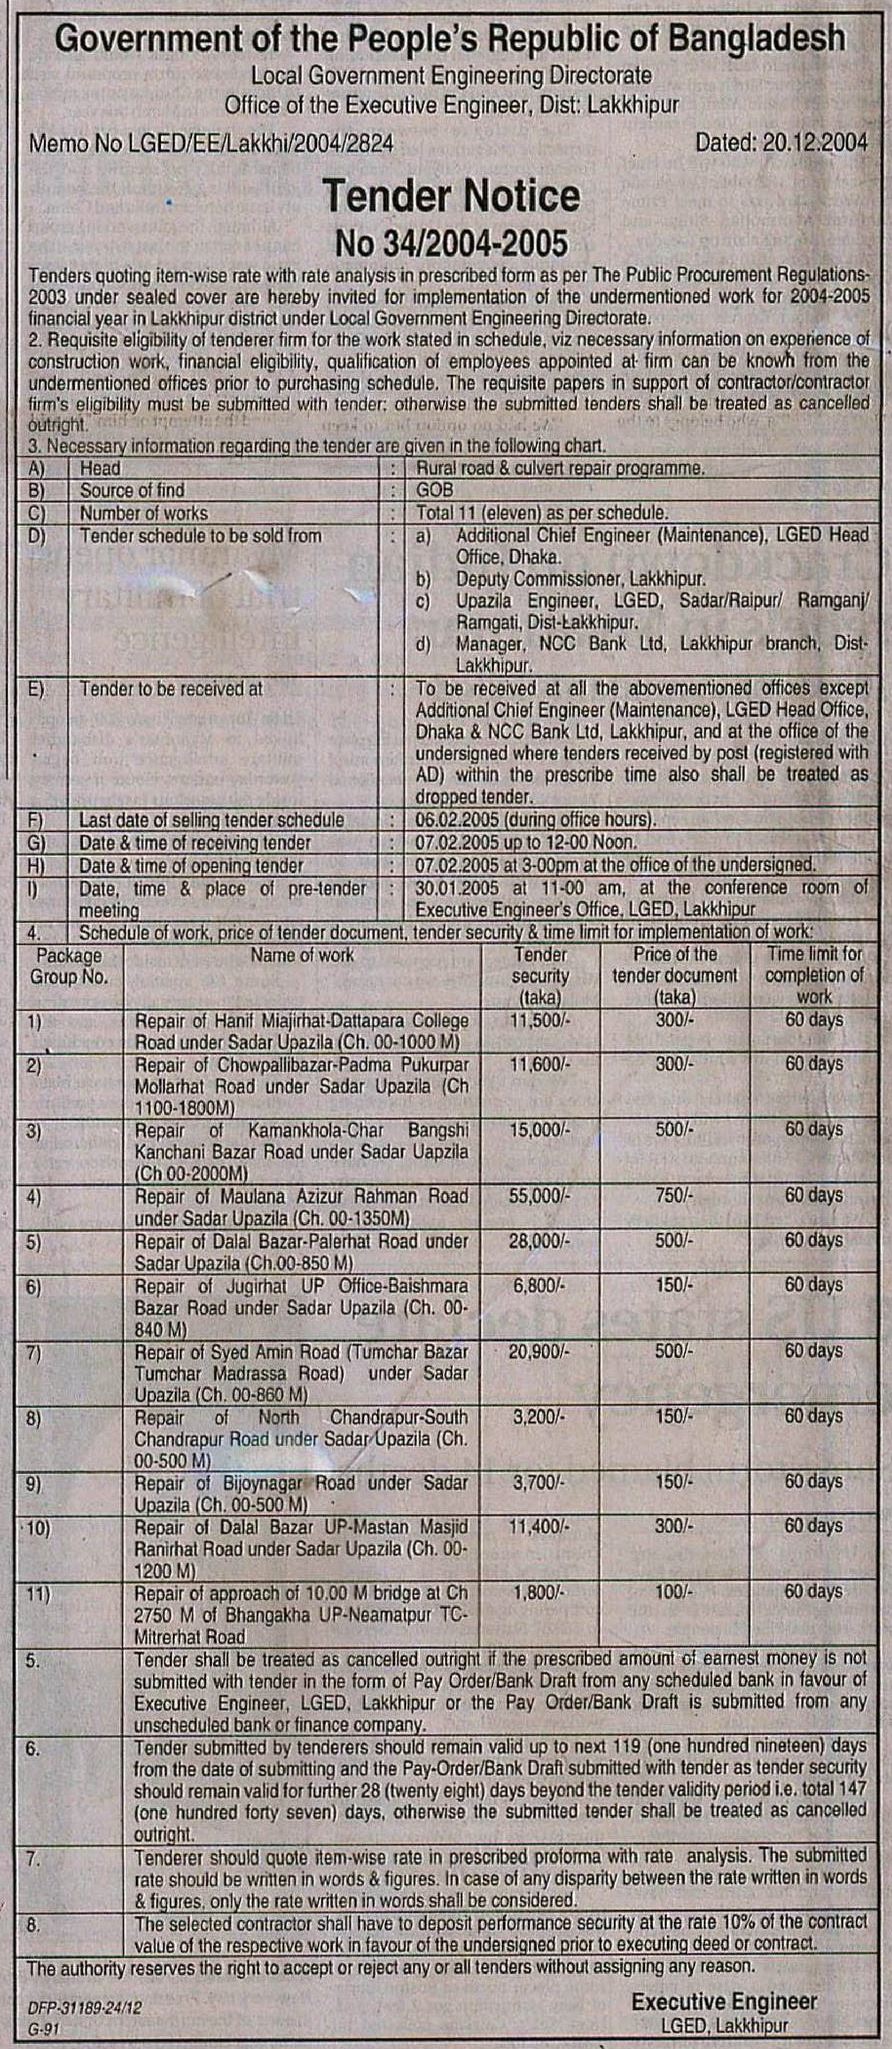 Government of the People's Republic of Bangladesh
Local Government Engineering Directorate
Office of the Executive Engineer, Dist: Lakkhipur
Memo No LGED/EE/Lakkhi/2004/2824 Dated: 20.12.2004
Tender Notice
No 34/2004-2005
Tenders quoting item-wise rate with rate analysis in prescribed form as per The Public Procurement Regulations-
2003 under sealed cover are hereby invited for implementation of the undermentioned work for 2004-2005
financial year in Lakkhipur district under Local Government Engineering Directorate.
2. Requisite eligibility of tenderer firm for the work stated in schedule, viz necessary information on experience of
construction work, financial eligibility, qualification of employees appointed at firm can be known from the
undermentioned offices prior to purchasing schedule. The requisite papers in support of contractor/contractor
firm's eligibility must be submitted with tender; otherwise the submitted tenders shall be treated as cancelled
outright.
3. Necessary information regarding the tender are given in the following chart.
A) Head : Rural road & culvert repair programme.
B) Source of find : GOB
C) Number of works : Total 11 (eleven) as per schedule.
D) Tender schedule to be sold from : a) Additional Chief Engineer (Maintenance), LGED Head
Office, Dhaka.
b) Deputy Commissioner, Lakkhipur.
c) Upazila Engineer, LGED, Sadar/Raipur/ Ramganj/
Ramgati, Dist-Lakkhipur.
d) Manager, NCC Bank Ltd, Lakkhipur branch, Dist-
Lakkhipur.
E) Tender to be received at : To be received at all the abovementioned offices except
Additional Chief Engineer (Maintenance), LGED Head Office,
Dhaka & NCC Bank Ltd, Lakkhipur, and at the office of the
undersigned where tenders received by post (registered with
AD) within the prescribe time also shall be treated as
dropped tender.
F) Last date of selling tender schedule : 06.02.2005 (during office hours).
G) Date & time of receiving tender : 07.02.2005 up to 12-00 Noon.
H) Date & time of opening tender : 07.02.2005 at 3-00pm at the office of the undersigned.
I) Date, time & place of pre-tender : 30.01.2005 at 11-00 am, at the conference room of
meeting Executive Engineer's Office, LGED, Lakkhipur
4. Schedule of work, price of tender document, tender security & time limit for implementation of work:
Package Name of work Tender Price of the Time limit for
Group No. security tender document completion of
(taka) (taka) work
1) Repair of Hanif Miajirhat-Dattapara College 11,500/- 300/- 60 days
Road under Sadar Upazila (Ch. 00-1000 M)
2) Repair of Chowpallibazar-Padma Pukurpar 11,600/- 300/- 60 days
Mollarhat Road under Sadar Upazila (Ch
1100-1800M)
3) Repair of Kamankhola-Char Bangshi 15,000/- 500/- 60 days
Kanchani Bazar Road under Sadar Uapzila
(Ch 00-2000M)
4) Repair of Maulana Azizur Rahman Road 55,000/- 750/- 60 days
under Sadar Upazila (Ch. 00-1350M)
5) Repair of Dalal Bazar-Palerhat Road under 28,000/- 500/- 60 days
Sadar Upazila (Ch.00-850 M)
6) Repair of Jugirhat UP Office-Baishmara 6,800/- 150/- 60 days
Bazar Road under Sadar Upazila (Ch. 00-
840 M)
7) Repair of Syed Amin Road (Tumchar Bazar 20,900/- 500/- 60 days
Tumchar Madrassa Road) under Sadar
Upazila (Ch. 00-860 M)
8) Repair of North Chandrapur-South 3,200/- 150/- 60 days
Chandrapur Road under Sadar Upazila (Ch.
00-500 M)
9) Repair of Bijoynagar Road under Sadar 3,700/- 150/- 60 days
Upazila (Ch. 00-500 M)
10) Repair of Dalal Bazar UP-Mastan Masjid 11,400/- 300/- 60 days
Ranirhat Road under Sadar Upazila (Ch. 00-
1200 M)
11) Repair of approach of 10.00 M bridge at Ch 1,800/- 100/- 60 days
2750 M of Bhangakha UP-Neamatpur TC-
Mitrerhat Road
5. Tender shall be treated as cancelled outright if the prescribed amount of earnest money is not
submitted with tender in the form of Pay Order/Bank Draft from any scheduled bank in favour of
Executive Engineer, LGED, Lakkhipur or the Pay Order/Bank Draft is submitted from any
unscheduled bank or finance company.
6. Tender submitted by tenderers should remain valid up to next 119 (one hundred nineteen) days
from the date of submitting and the Pay-Order/Bank Draft submitted with tender as tender security
should remain valid for further 28 (twenty eight) days beyond the tender validity period i.e. total 147
(one hundred forty seven) days, otherwise the submitted tender shall be treated as cancelled
outright.
7. Tenderer should quote item-wise rate in prescribed proforma with rate analysis. The submitted
rate should be written in words & figures. In case of any disparity between the rate written in words
& figures, only the rate written in words shall be considered.
8. The selected contractor shall have to deposit performance security at the rate 10% of the contract
value of the respective work in favour of the undersigned prior to executing deed or contract.
The authority reserves the right to accept or reject any or all tenders without assigning any reason.
DFP-31189-24/12 Executive Engineer
G-91 LGED, Lakkhipur